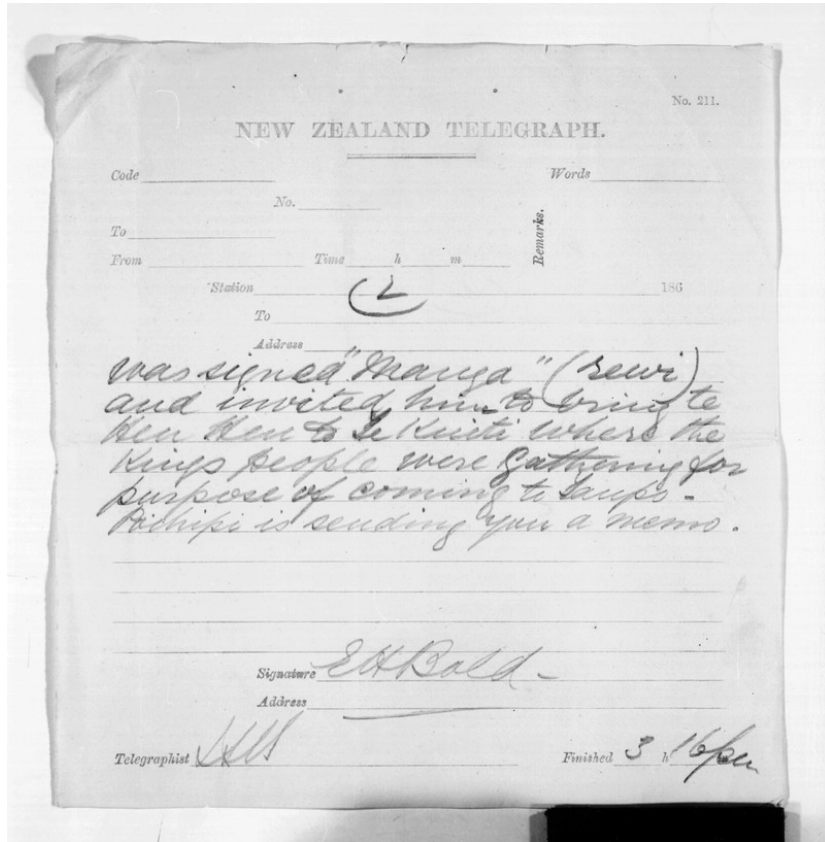 No. 211.
NEW ZEALAND TELEGRAPH.
Code Words
No.
Remarks.
To
From Time h m
Station 186
(2)
To
Address
was signed "Manga" (Rewi)
and invited him to bring te
Heu Heu to Te Kuiti where the
Kings people were gathering for
purpose of coming to Taupo -
Pohipi is sending you a memo.
Signature E H Bold -
Address
Telegraphist
Finished 3 h 16 pm